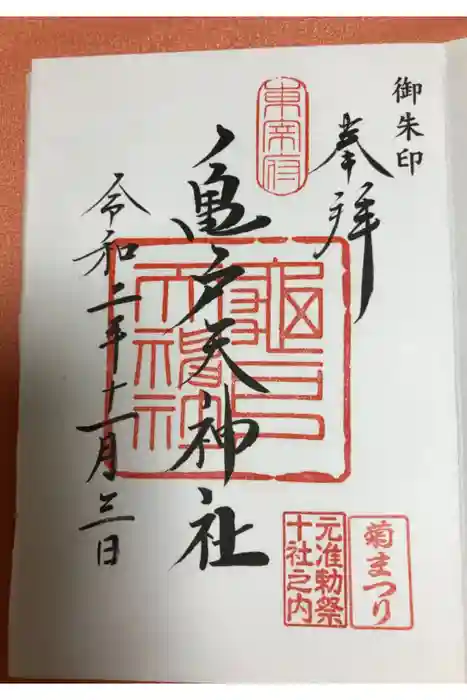 御朱印
奉拝
東宰府
亀戸天神社
龜戸
天神社
令和二年十一月三日
菊まつり
元准勅祭
十社之内